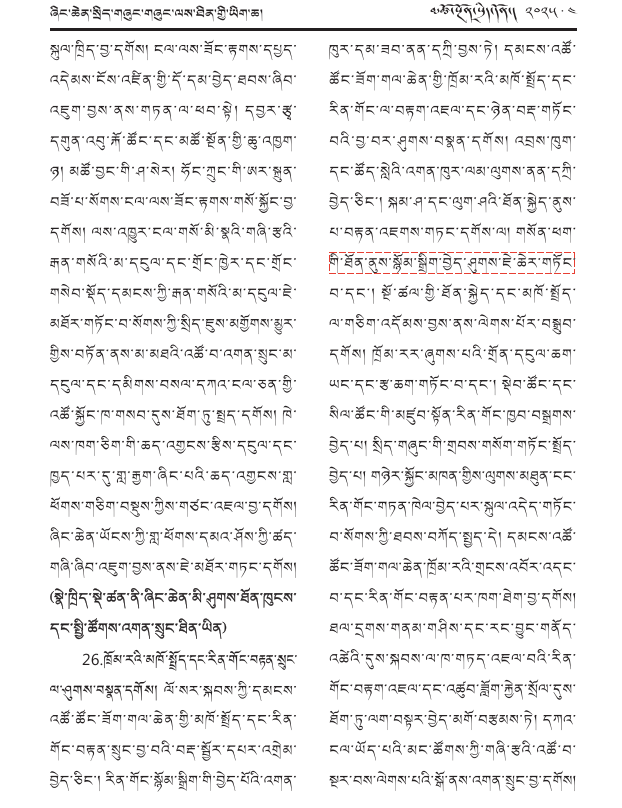 ཞིང་ཆེན་སྲིད་གཞུང་གཞུང་ལས་ཐིན་གྱི་ཡིག་ཆ།
༢༠༢༥ · ༤
སྐུལ་ཁྲིད་བྱ་དགོས། ངལ་ལས་ཟོང་རྟགས་དཔྱད་
འདེམས་ངོས་འཛིན་གྱི་དོ་དམ་བྱེད་ཐབས་ཞིབ་
འཇུག་བྱས་ནས་གཏན་ལ་ཕབ་སྟེ། དབྱར་རྩྭ་
དགུན་འབུ་རྐོ་ཚོང་དང་མཚོ་སྔོན་གྱི་ཆུ་འཁྱག་
ཉ། མཚོ་བྱང་གི་ཤ་སེར། ཧོང་ཀྲུང་གི་ཨར་སྐྲུན་
བཟོ་པ་སོགས་ངལ་ལས་ཟོང་རྟགས་གསོ་སྐྱོང་བྱ་
དགོས། ལས་འཁྱུར་ངལ་གསོ་མི་སྣའི་གཞི་རྩའི་
རྒན་གསོའི་མ་དངུལ་དང་གྲོང་ཁྱེར་དང་གྲོང་
གསེབ་སྡོད་དམངས་ཀྱི་རྒན་གསོའི་མ་དངུལ་ཇེ་
མཐོར་གཏོང་བ་སོགས་ཀྱི་སྲིད་ཇུས་མགྱོགས་མྱུར་
གྱིས་བཏོན་ནས་མ་མཐའི་འཚོ་བ་འགན་སྲུང་མ་
དངུལ་དང་དམིགས་བསལ་དཀའ་ངལ་ཅན་གྱི་
འཚོ་སྐྱོང་ཁ་གསབ་དུས་ཐོག་ཏུ་སྤྲད་དགོས། ཁེ་
ལས་ཁག་ཅིག་གི་ཆད་འགྱངས་རྩིས་དངུལ་དང་
ཁྱད་པར་དུ་གླ་རྒྱག་ཞིང་པའི་ཆད་འགྱངས་གླ་
ཕོགས་གཅིག་བསྡུས་ཀྱིས་གཙང་འཇལ་བྱ་དགོས།
ཞིང་ཆེན་ཡོངས་ཀྱི་གླ་ཕོགས་དམའ་ཤོས་ཀྱི་ཚད་
གཞི་ཞིབ་འཇུག་བྱས་ནས་ཇེ་མཐོར་གཏང་དགོས།
(སྣེ་ཁྲིད་སྡེ་ཚན་ནི་ཞིང་ཆེན་མི་ཤུགས་ཐོན་ཁུངས་
དང་སྤྱི་ཚོགས་འགན་སྲུང་ཐིན་ཡིན)
26.ཁྲོམ་རའི་མཁོ་སྤྲོད་དང་རིན་གོང་བརྟན་སྲུང་
ལ་ཤུགས་བསྣན་དགོས། ལོ་སར་སྐབས་ཀྱི་དམངས་
འཚོ་ཚོང་ཟོག་གལ་ཆེན་གྱི་མཁོ་སྤྲོད་དང་རིན་
གོང་བརྟན་སྲུང་བྱ་བའི་བརྡ་སྦྱོར་དཔར་འགྲེམ་
བྱེད་ཅིང༌། རིན་གོང་སྙོམ་སྒྲིག་གི་བྱེད་པོའི་འགན་
ཁུར་དམ་ཟབ་ནན་དཀྲི་བྱས་ཏེ། དམངས་འཚོ་
ཚོང་ཟོག་གལ་ཆེན་གྱི་ཁྲོམ་རའི་མཁོ་སྤྲོད་དང་
རིན་གོང་ལ་བརྟག་འཇལ་དང་ཉེན་བརྡ་གཏོང་
བའི་བྱ་བར་ཤུགས་བསྣན་དགོས། འབྲས་ཁུག་
དང་ཚོད་སླེའི་འགན་ཁུར་ལམ་ལུགས་ནན་དཀྲི་
བྱེད་ཅིང༌། སྐམ་ཤ་དང་ལུག་ཤའི་ཐོན་སྐྱེད་ནུས་
པ་བརྟན་འཇགས་གཏང་དགོས་ལ། གསོན་ཕག་
གི་ཐོན་ནུས་སྙོམ་སྒྲིག་བྱེད་ཤུགས་ཇེ་ཆེར་གཏོང་
བ་དང༌། སྔོ་ཚལ་གྱི་ཐོན་སྐྱེད་དང་མཁོ་སྤྲོད་
ལ་གཅིག་འདོམས་བྱས་ནས་ལེགས་པོར་བསྒྲུབ་
དགོས། ཁྲོམ་རར་ཞུགས་པའི་གྲོན་དངུལ་ཆག་
ཡང་དང་རྩ་ཆག་གཏོང་བ་དང༌། སྡེབ་ཚོང་དང་
སིལ་ཚོང་གི་མཛུབ་སྟོན་རིན་གོང་ཁྱབ་བསྒྲགས་
བྱེད་པ། སྲིད་གཞུང་གི་གྲབས་གསོག་གཏོང་སྤྲོད་
བྱེད་པ། གཉེར་སྐྱོང་མཁན་གྱིས་ལུགས་མཐུན་ངང་
རིན་གོང་གཏན་ཁེལ་བྱེད་པར་སྐུལ་འདེད་གཏོང་
བ་སོགས་ཀྱི་ཐབས་བཀོད་སྤྱད་དེ། དམངས་འཚོ་
ཚོང་ཟོག་གལ་ཆེན་ཁྲོམ་རའི་གྲངས་འབོར་འདང་
བ་དང་རིན་གོང་བརྟན་པར་ཁག་ཐེག་བྱ་དགོས།
ཐལ་དྲགས་གནམ་གཤིས་དང་རང་བྱུང་གནོད་
འཚེའི་དུས་སྐབས་ལ་ཁ་གཏད་འཇལ་བའི་རིན་
གོང་བརྟག་འཇལ་དང་འཚུབ་ཟློག་རྐྱེན་སྲོལ་དུས་
ཐོག་ཏུ་ལག་བསྟར་བྱེད་མགོ་བརྩམས་ཏེ། དཀའ་
ངལ་ཡོད་པའི་མང་ཚོགས་ཀྱི་གཞི་རྩའི་འཚོ་བ་
སྔར་བས་ལེགས་པའི་སྒོ་ནས་འགན་སྲུང་བྱ་དགོས།